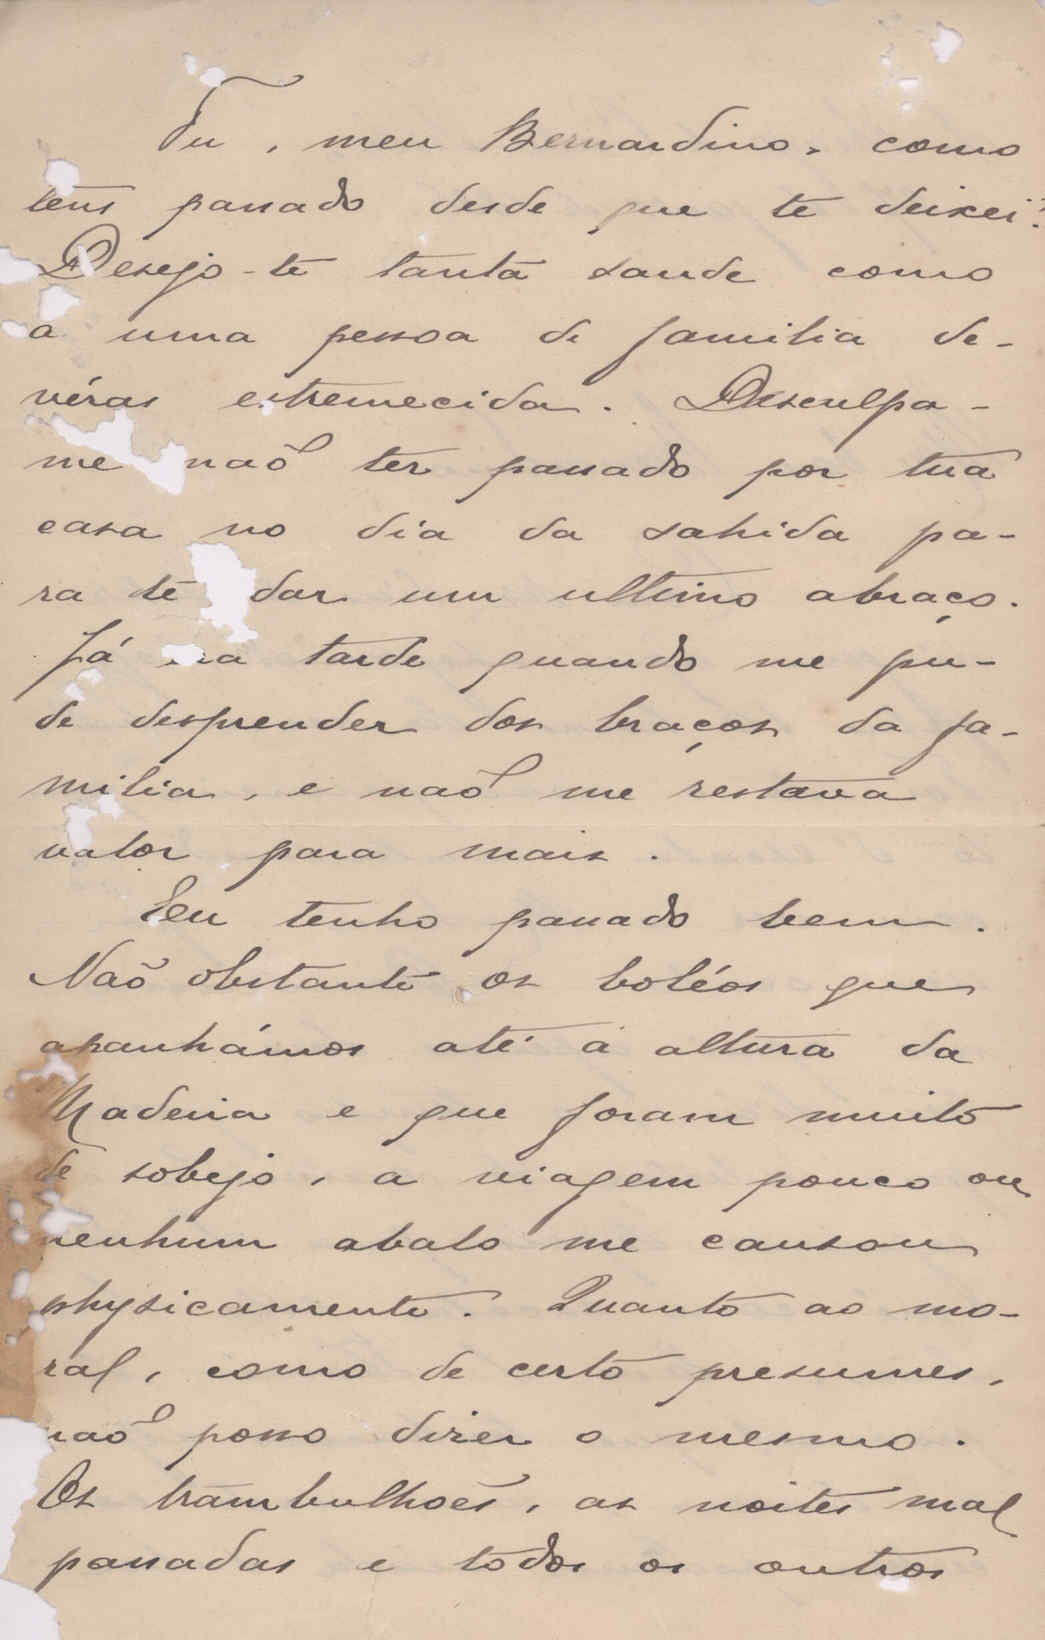 Tu, meu Bernardino, como
tens passado desde que te deixei?
Desejo-te tanta saude como
a uma pessoa de familia de-
véras estremecida. Desculpa-
me não ter passado por tua
casa no dia da sahida pa-
ra te dar um ultimo abraço.
Já era tarde quando me pu-
de desprender dos braços da fa-
milia, e não me restava
valor para mais.
Eu tenho passado bem.
Não obstante os boléos que
apanhámos até á altura da
Madeira e que foram muito
de sobejo, a viagem pouco ou
nenhum abalo me causou
physicamente. Quanto ao mo-
ral, como de certo presumes,
não posso dizer o mesmo.
Os trambulhões, as noites mal
passadas e todos os outros